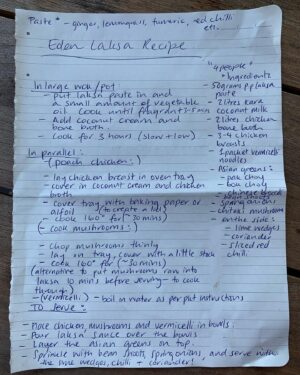 Paste* - ginger, lemongrass, turmeric, red chilli
etc.
Eden Laksa Recipe
"4 people"
* Ingredients
In large wok/pot
- put laksa paste in and
a small amount of vegetable
oil. Cook until fragrant 3-5 min
- Add coconut cream and
bone broth.
- Cook for 3 hours (slow + low)
- 50grams p.p laksa
paste
- 2 litres kara
coconut milk
- 2 litres chicken
bone broth
- 3-4 chicken
breasts
- 1 packet vermicelli
noodles.
- Asian greens:
- pak choy
- bok choy
- bean shoots
- spring onions
- mushroom
- on the side:
- lime wedges
- coriander
- sliced red
chili.
In parallel:
(poach chicken:)
- lay chicken breast in oven tray
- cover in coconut cream and chicken
broth
- cover tray with baking paper or
alfoil (to create a lid)
- Cook 160° for (~30 mins)
(- cook mushrooms:)
- Chop mushrooms thinly
- lay on tray, cover with a little stock
- cook 160° for (~30 mins)
(alternative to put mushrooms raw into
laksa 10 mins before serving - to cook
through)
- (vermicelli:) - boil in water as per instructions
TO serve:
- Place chicken, mushrooms and vermicelli in bowls.
- Pour laksa sauce over the bowls
- Layer the Asian greens on top.
- Sprinkle with bean shoots, spring onions, and serve with
lime wedges, chilli + coriander!